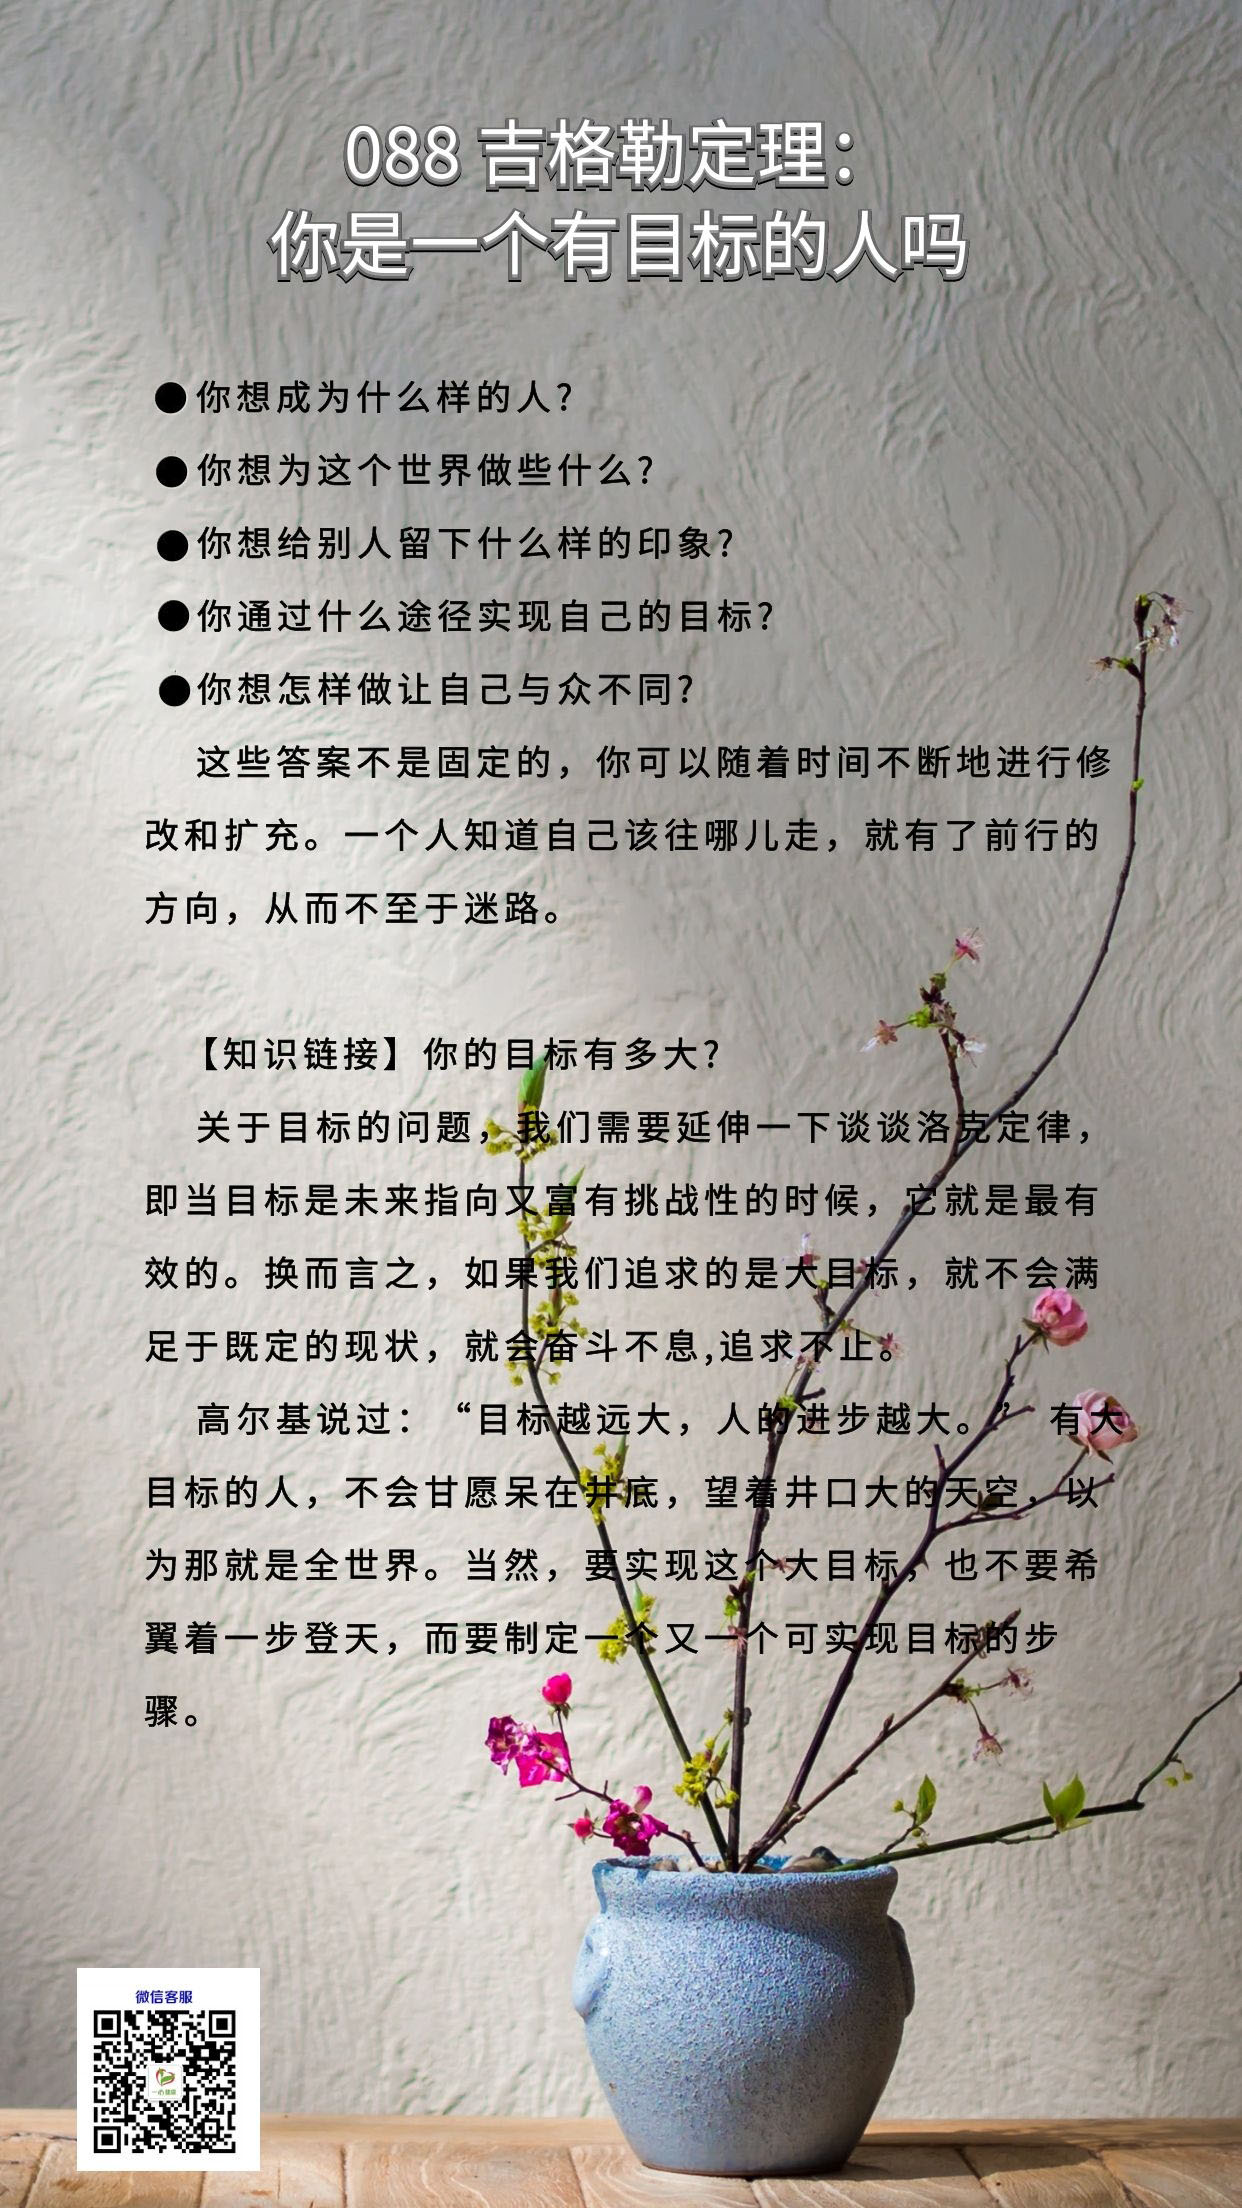 088 吉格勒定理：
你是一个有目标的人吗
●你想成为什么样的人?
●你想为这个世界做些什么?
●你想给别人留下什么样的印象?
●你通过什么途径实现自己的目标?
●你想怎样做让自己与众不同?
这些答案不是固定的，你可以随着时间不断地进行修
改和扩充。一个人知道自己该往哪儿走，就有了前行的
方向，从而不至于迷路。
【知识链接】你的目标有多大?
关于目标的问题，我们需要延伸一下谈谈洛克定律，
即当目标是未来指向又富有挑战性的时候，它就是最有
效的。换而言之，如果我们追求的是大目标，就不会满
足于既定的现状，就会奋斗不息,追求不止。
高尔基说过：“目标越远大，人的进步越大。” 有大
目标的人，不会甘愿呆在井底，望着井口大的天空，以
为那就是全世界。当然，要实现这个大目标，也不要希
翼着一步登天，而要制定一个又一个可实现目标的步
骤。
微信客服
一心健康